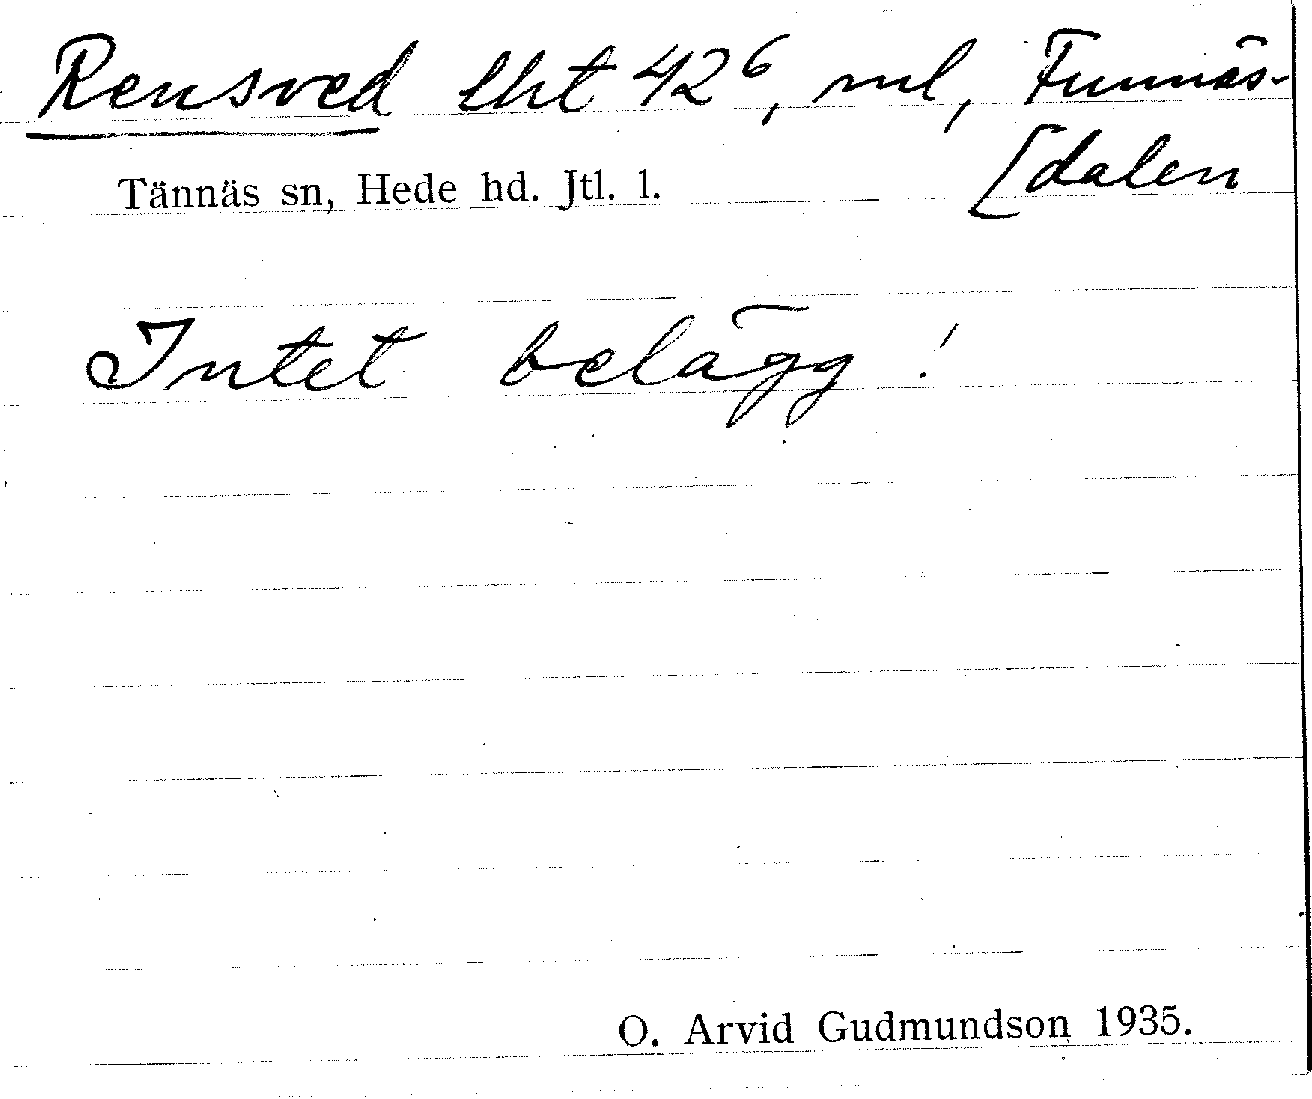 Rensved lht 42⁶, ml, Funnäs-
[dalen
Tännäs sn, Hede hd. Jtl. l.
Intet belägg!
O. Arvid Gudmundson 1935.